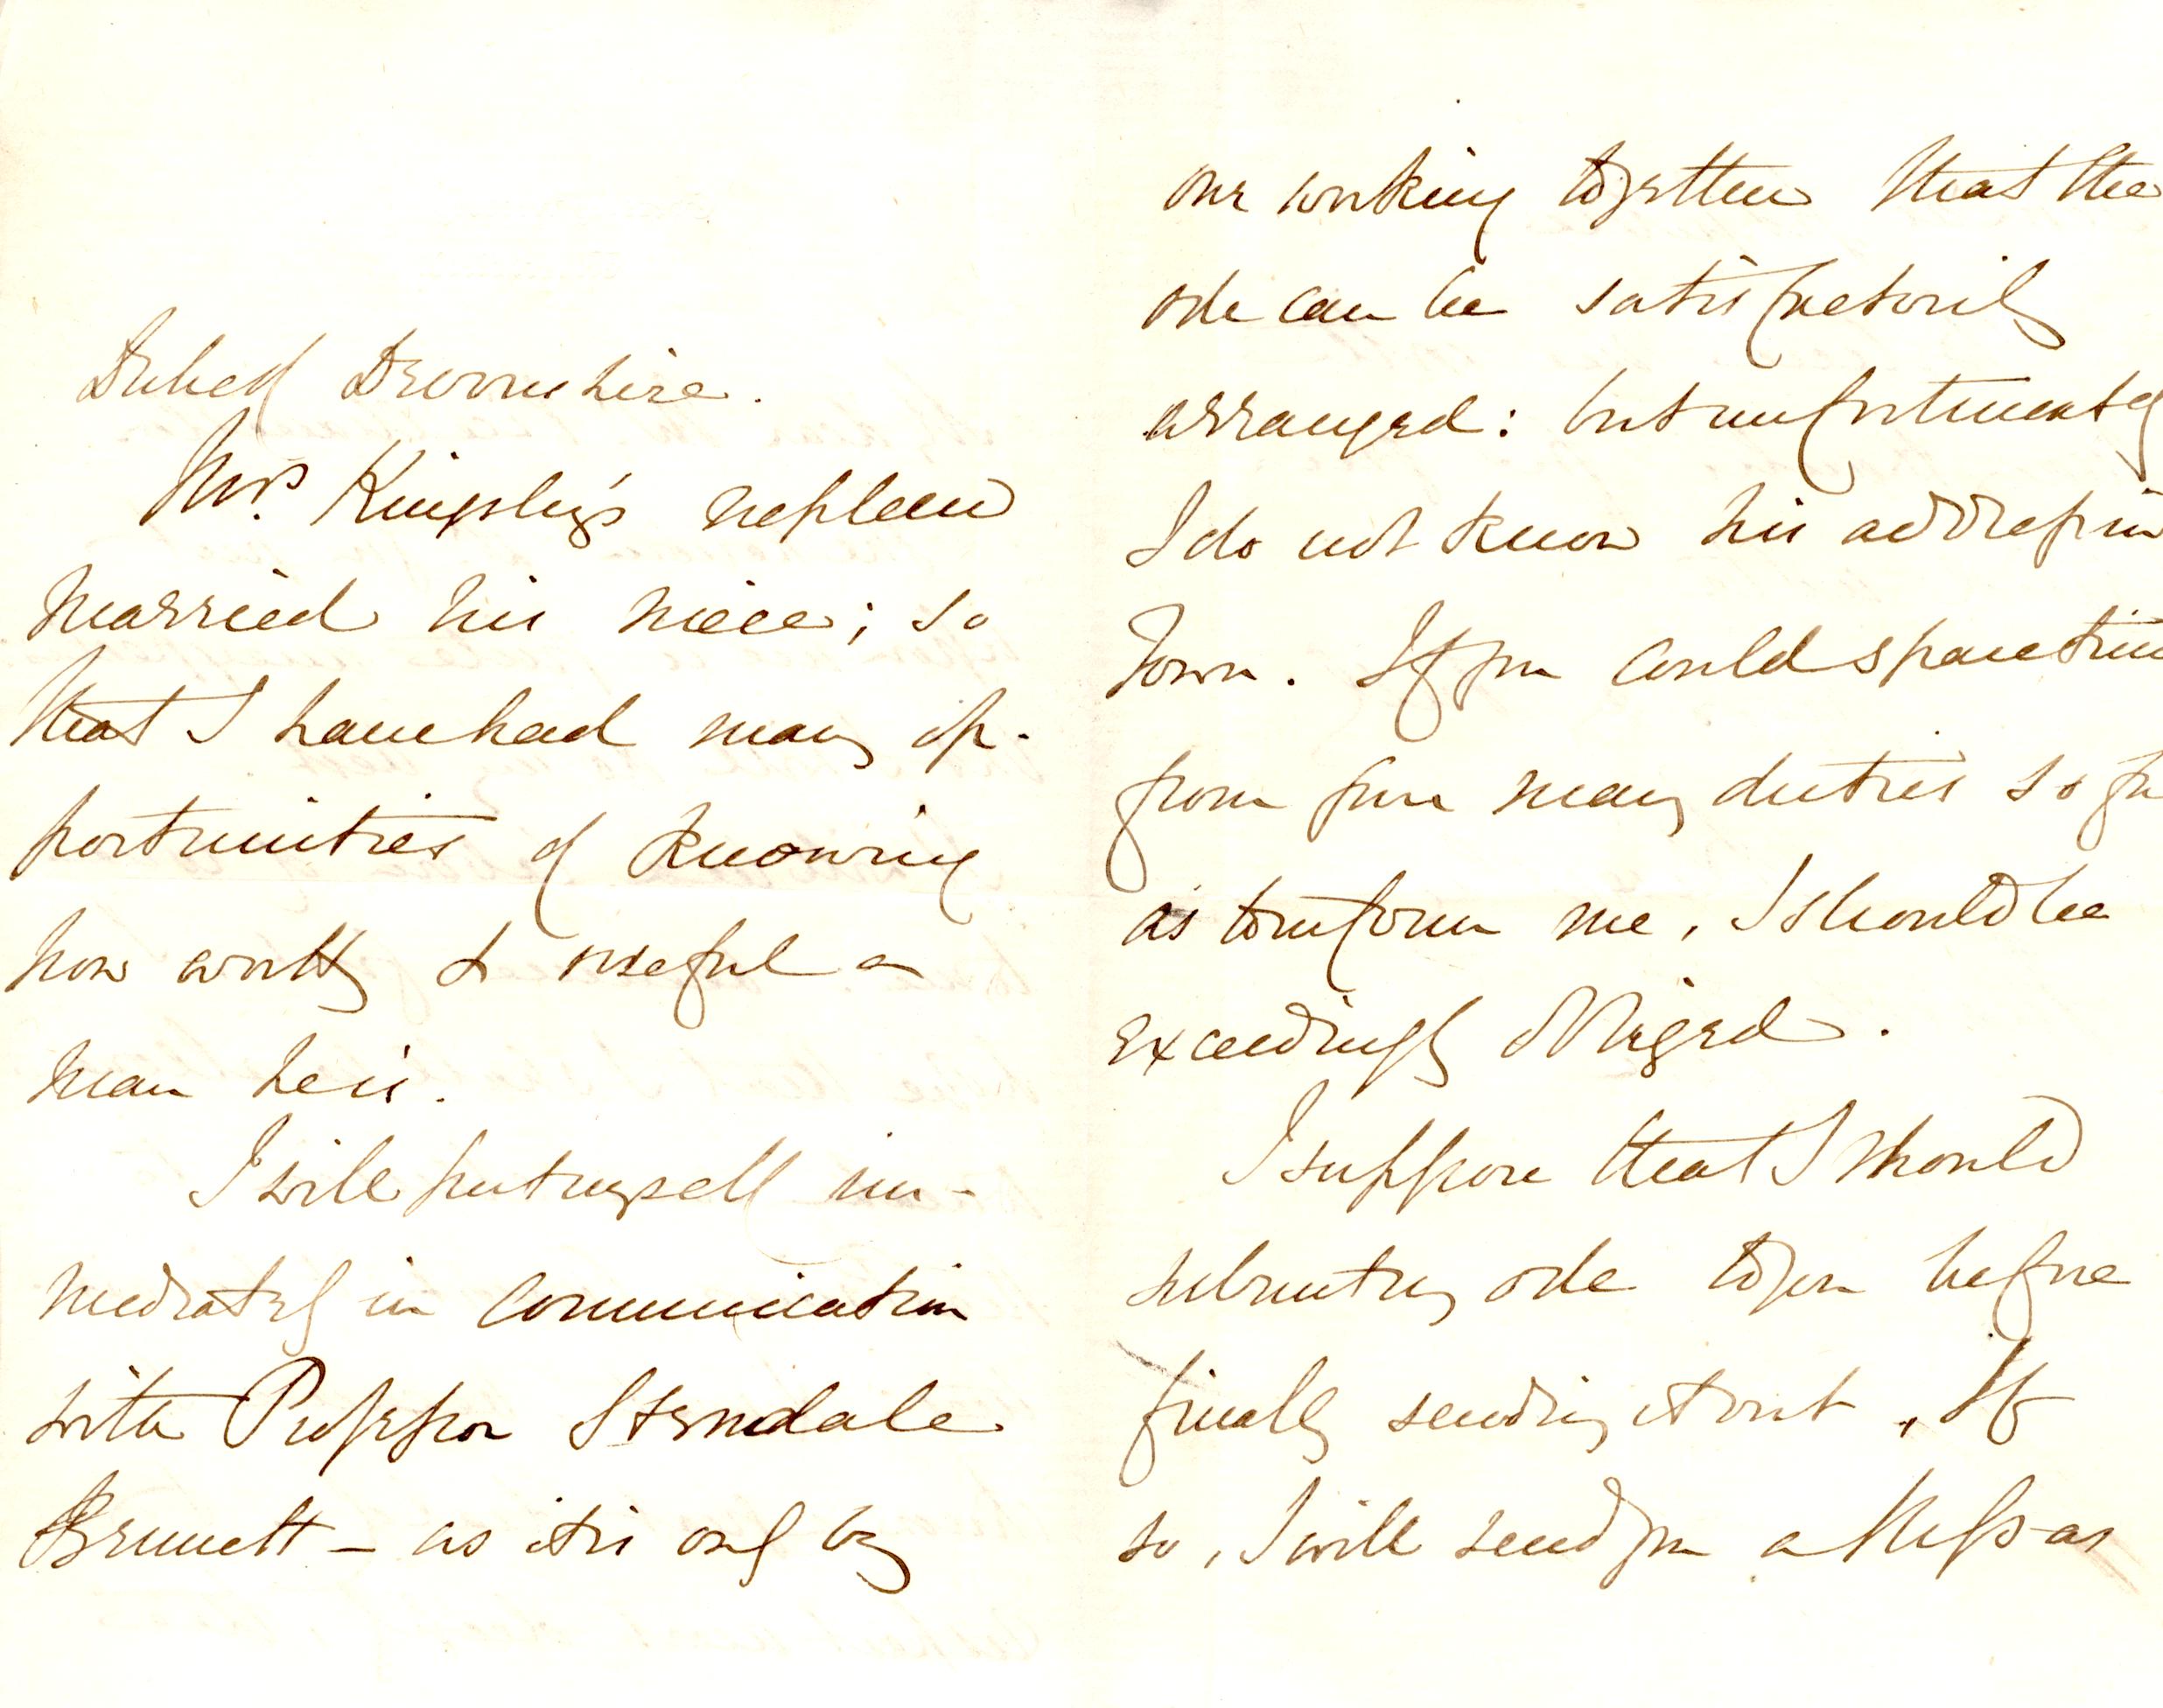 Duke of Devonshire.
Mrs. Kingsley's nephew
married his niece; so
that I have had many op-
portunities of knowing
how worthy & useful a
man he is.
I will put myself im-
mediately in communication
with Professor Sterndale
Bennett – as it is only by
our working together that the
ode can be satisfactorily
arranged: but unfortunately
I do not know his address in
Town. If you could spare time
from your many duties so far
as to inform me, I should be
exceedingly obliged.
I suppose that I should
submit my ode to you before
finally sending it out. If
so, I will send you a MSS as